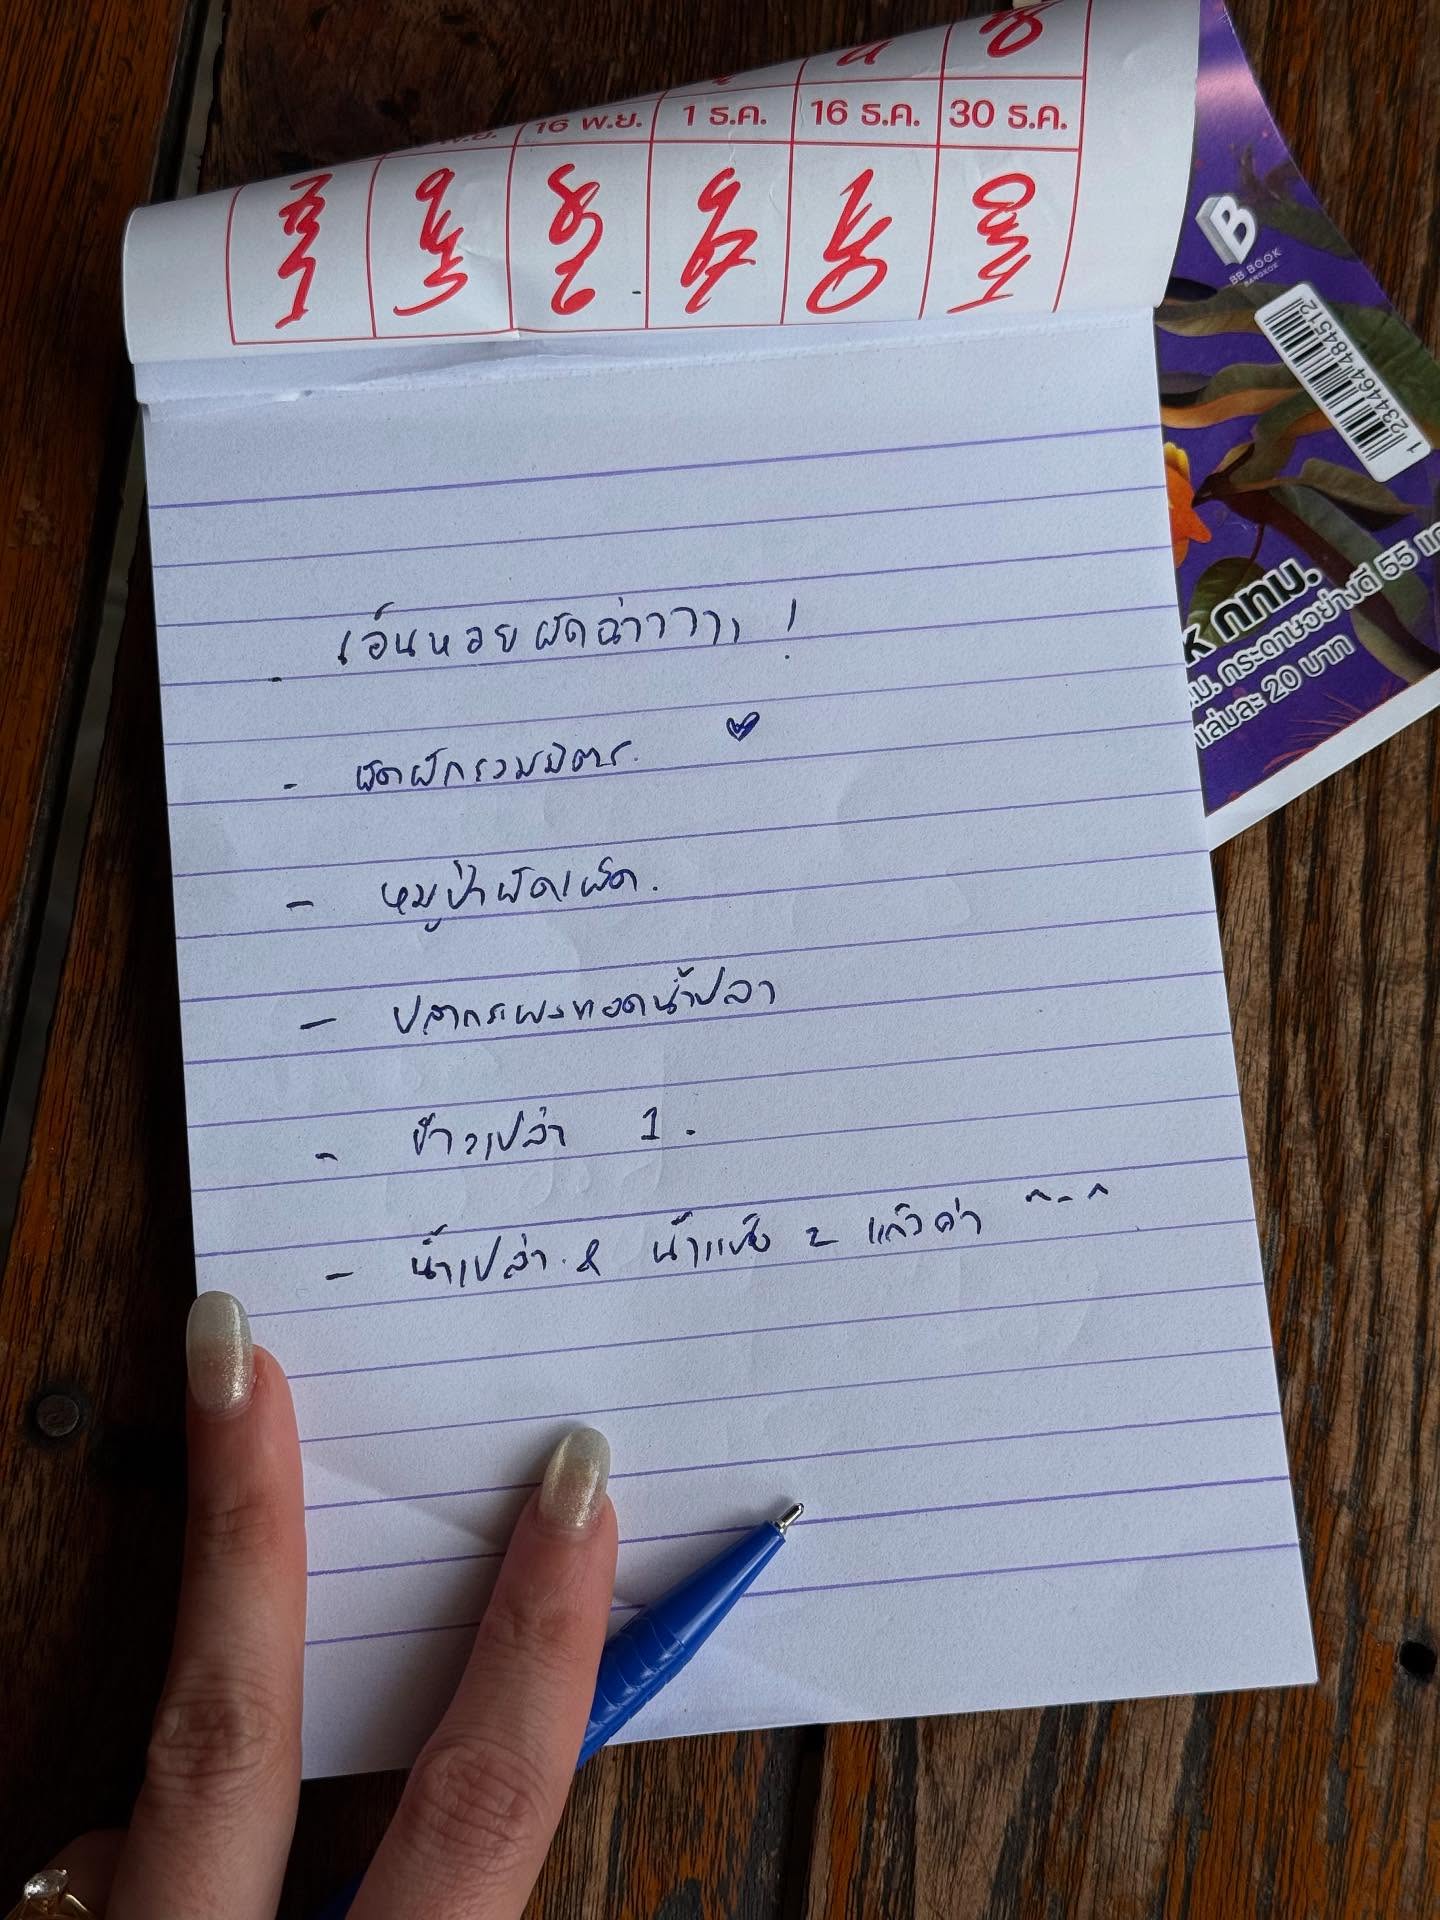 1 ธ.ค.
16 พ.ย.
16 ธ.ค.
30 ธ.ค.
BB BOOK
BANGKOK
1 234464 484512
กทม.
กระดาษอย่างดี 55 แก
เล่มละ 20 บาท
- เอ็นหอยผัดฉ่าาาาา !
- ผัดผักรวมมิตร.
- หมูป่าผัดเผ็ด.
- ปลากระพงทอดน้ำปลา
- ข้าวเปล่า 1.
- น้ำเปล่า. & น้ำแข็ง 2 แก้วค่า ^-^